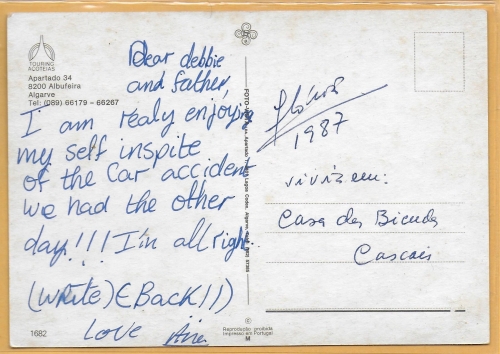 TOURING
AÇOTEIAS
Apartado 34
8200 Albufeira
Algarve
Tel: (089) 66179 – 66267
Dear debbie
and father,
I am realy enjoying
my self inspite
of the Car accident
we had the other
day!!! I'm all right...
(write) (Back!!)
Love
1682
1987
Casa das
Cascais
©
Reprodução proibida
Impresso em Portugal
M